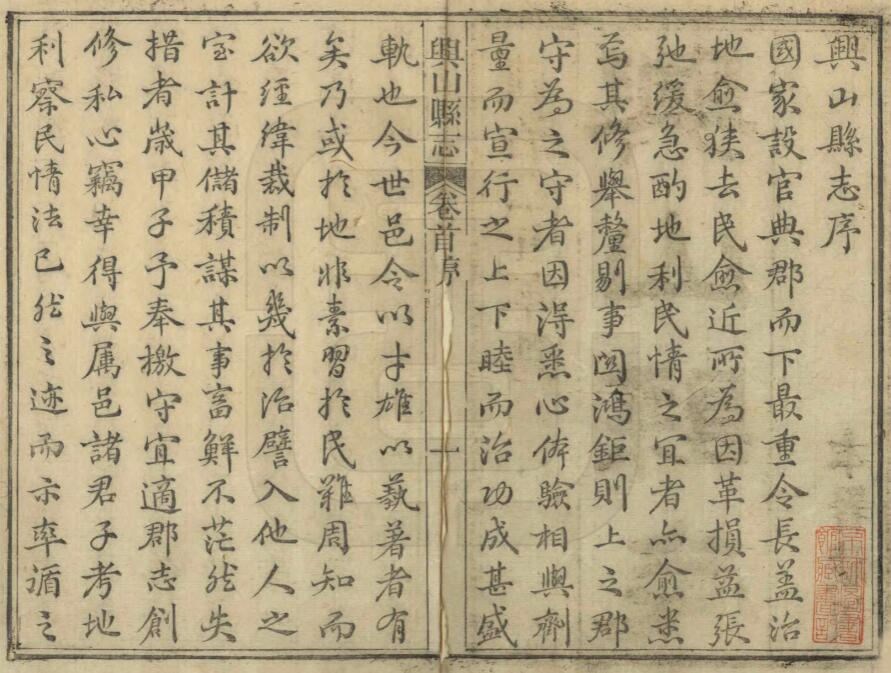 興山縣志序
國家設官典郡而下最重令長盖治
地愈狹去民愈近所為因革損益張
弛緩急酌地利民情之宜者亦愈悉
焉其修舉釐剔事関鴻鉅則上之郡
守為之守者因得悉心体驗相與劑
量而宣行之上下睦而治功成甚盛
興山縣志
卷首序
一
軌也今世邑令以才雄以藝著者有
矣乃或於地非素習於民難周知而
欲經緯裁制以幾於治譬入他人之
室計其儲積謀其事畜鮮不茫然失
措者歲甲子予奉檄守宜適郡志創
修私心竊幸得與属邑諸君子考地
利察民情法已然之迹而示率循之